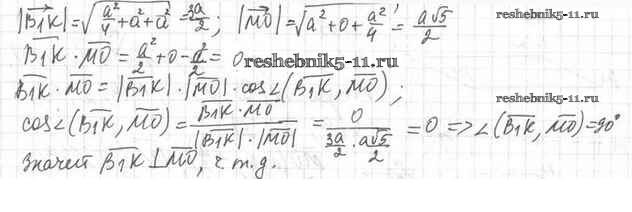 |B₁K| = √(a²/4 + a² + a²) = 3a/2; |MO| = √(a² + 0 + a²/4) = a√5/2
reshebnik5-11.ru
B₁K · MO = a²/2 + 0 - a²/2 = 0
reshebnik5-11.ru
B₁K · MO = |B₁K| · |MO| · cos∠(B₁K, MO);
reshebnik5-11.ru
cos∠(B₁K, MO) = B₁K · MO / |B₁K| · |MO| = 0 / (3a/2 · a√5/2) = 0 => ∠(B₁K, MO) = 90°
Значит B₁K ⊥ MO, ч.т.д.